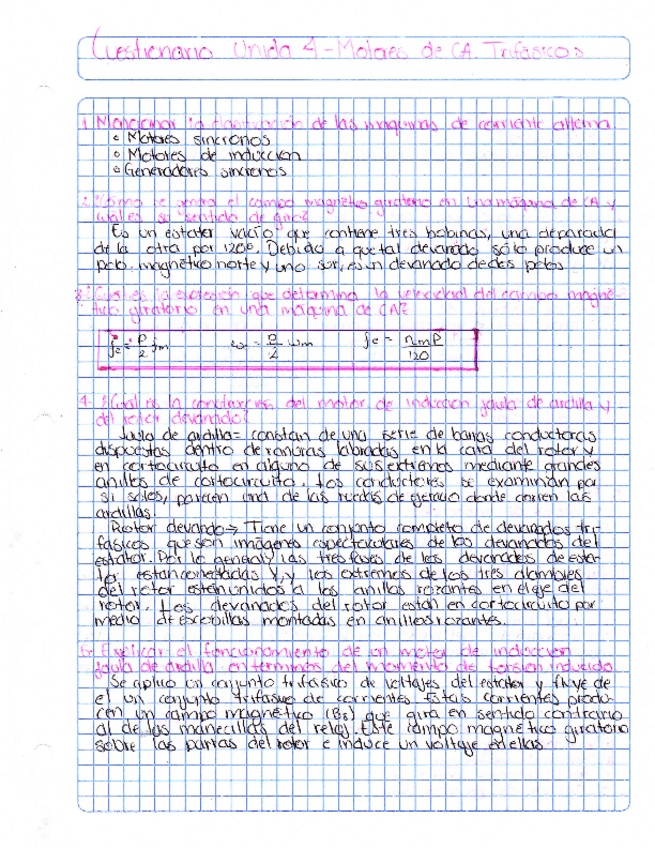 Cuestionario Unida 4 - Motores de CA. Trifásicos
1. Mencionar la clasificación de las maquinas de corriente alterna.
• Motores sincronos
• Motores de induccion
• Generadores sincronos
2. ¿Cómo se genera el campo magnético giratorio en una máquina de CA y
cual es su sentido de giro?
Es un estator vacío que contiene tres bobinas, una separada
de la otra por 120°. Debido a que tal devanado sólo produce un
polo magnetico norte y uno sur, es un devanado de dos polos.
3. ¿Cual es la expresión que determina la velocidad del campo magné-
tico giratorio en una máquina de CA?
fe = P/2 fm   ωe = P/2 ωm   fe = nmP/120
4. ¿Cuál es la construcción del motor de induccion jaula de ardilla y
del rotor devanado?
Jaula de ardilla = constan de una serie de barras conductoras
dispuestas dentro de ranuras labradas en la cara del rotor y
en cortocircuito en alguno de sus extremos mediante grandes
anillos de cortocircuito. Los conductores se examinan por
si solos, parecen una de las ruedas de ejercicio donde corren las
ardillas.
Rotor devando → Tiene un conjunto completo de devanados tri-
fásicos que son imágenes especulares de los devanados del
estator. Por lo general, las tres fases de los devanados de esta-
tor están conectadas Y, y los extremos de los tres alambres
del rotor estan unidos a los anillos rozantes en el eje del
rotor. Los devanados del rotor están en cortocircuito por
medio de escobillas montadas en anillos rozantes.
5. Explicar el funcionamiento de un motor de induccion
jaula de ardilla en terminos del momento de torsion inducido
Se aplica un conjunto trifásico de voltajes del estator y fluye de
el un conjunto trifasico de corrientes. Estas corrientes produ-
cen un campo magnético (Bs) que gira en sentido contrario
al de las manecillas del reloj. Este campo magnético giratorio
sobre las barras del rotor e induce un voltaje en ellas.